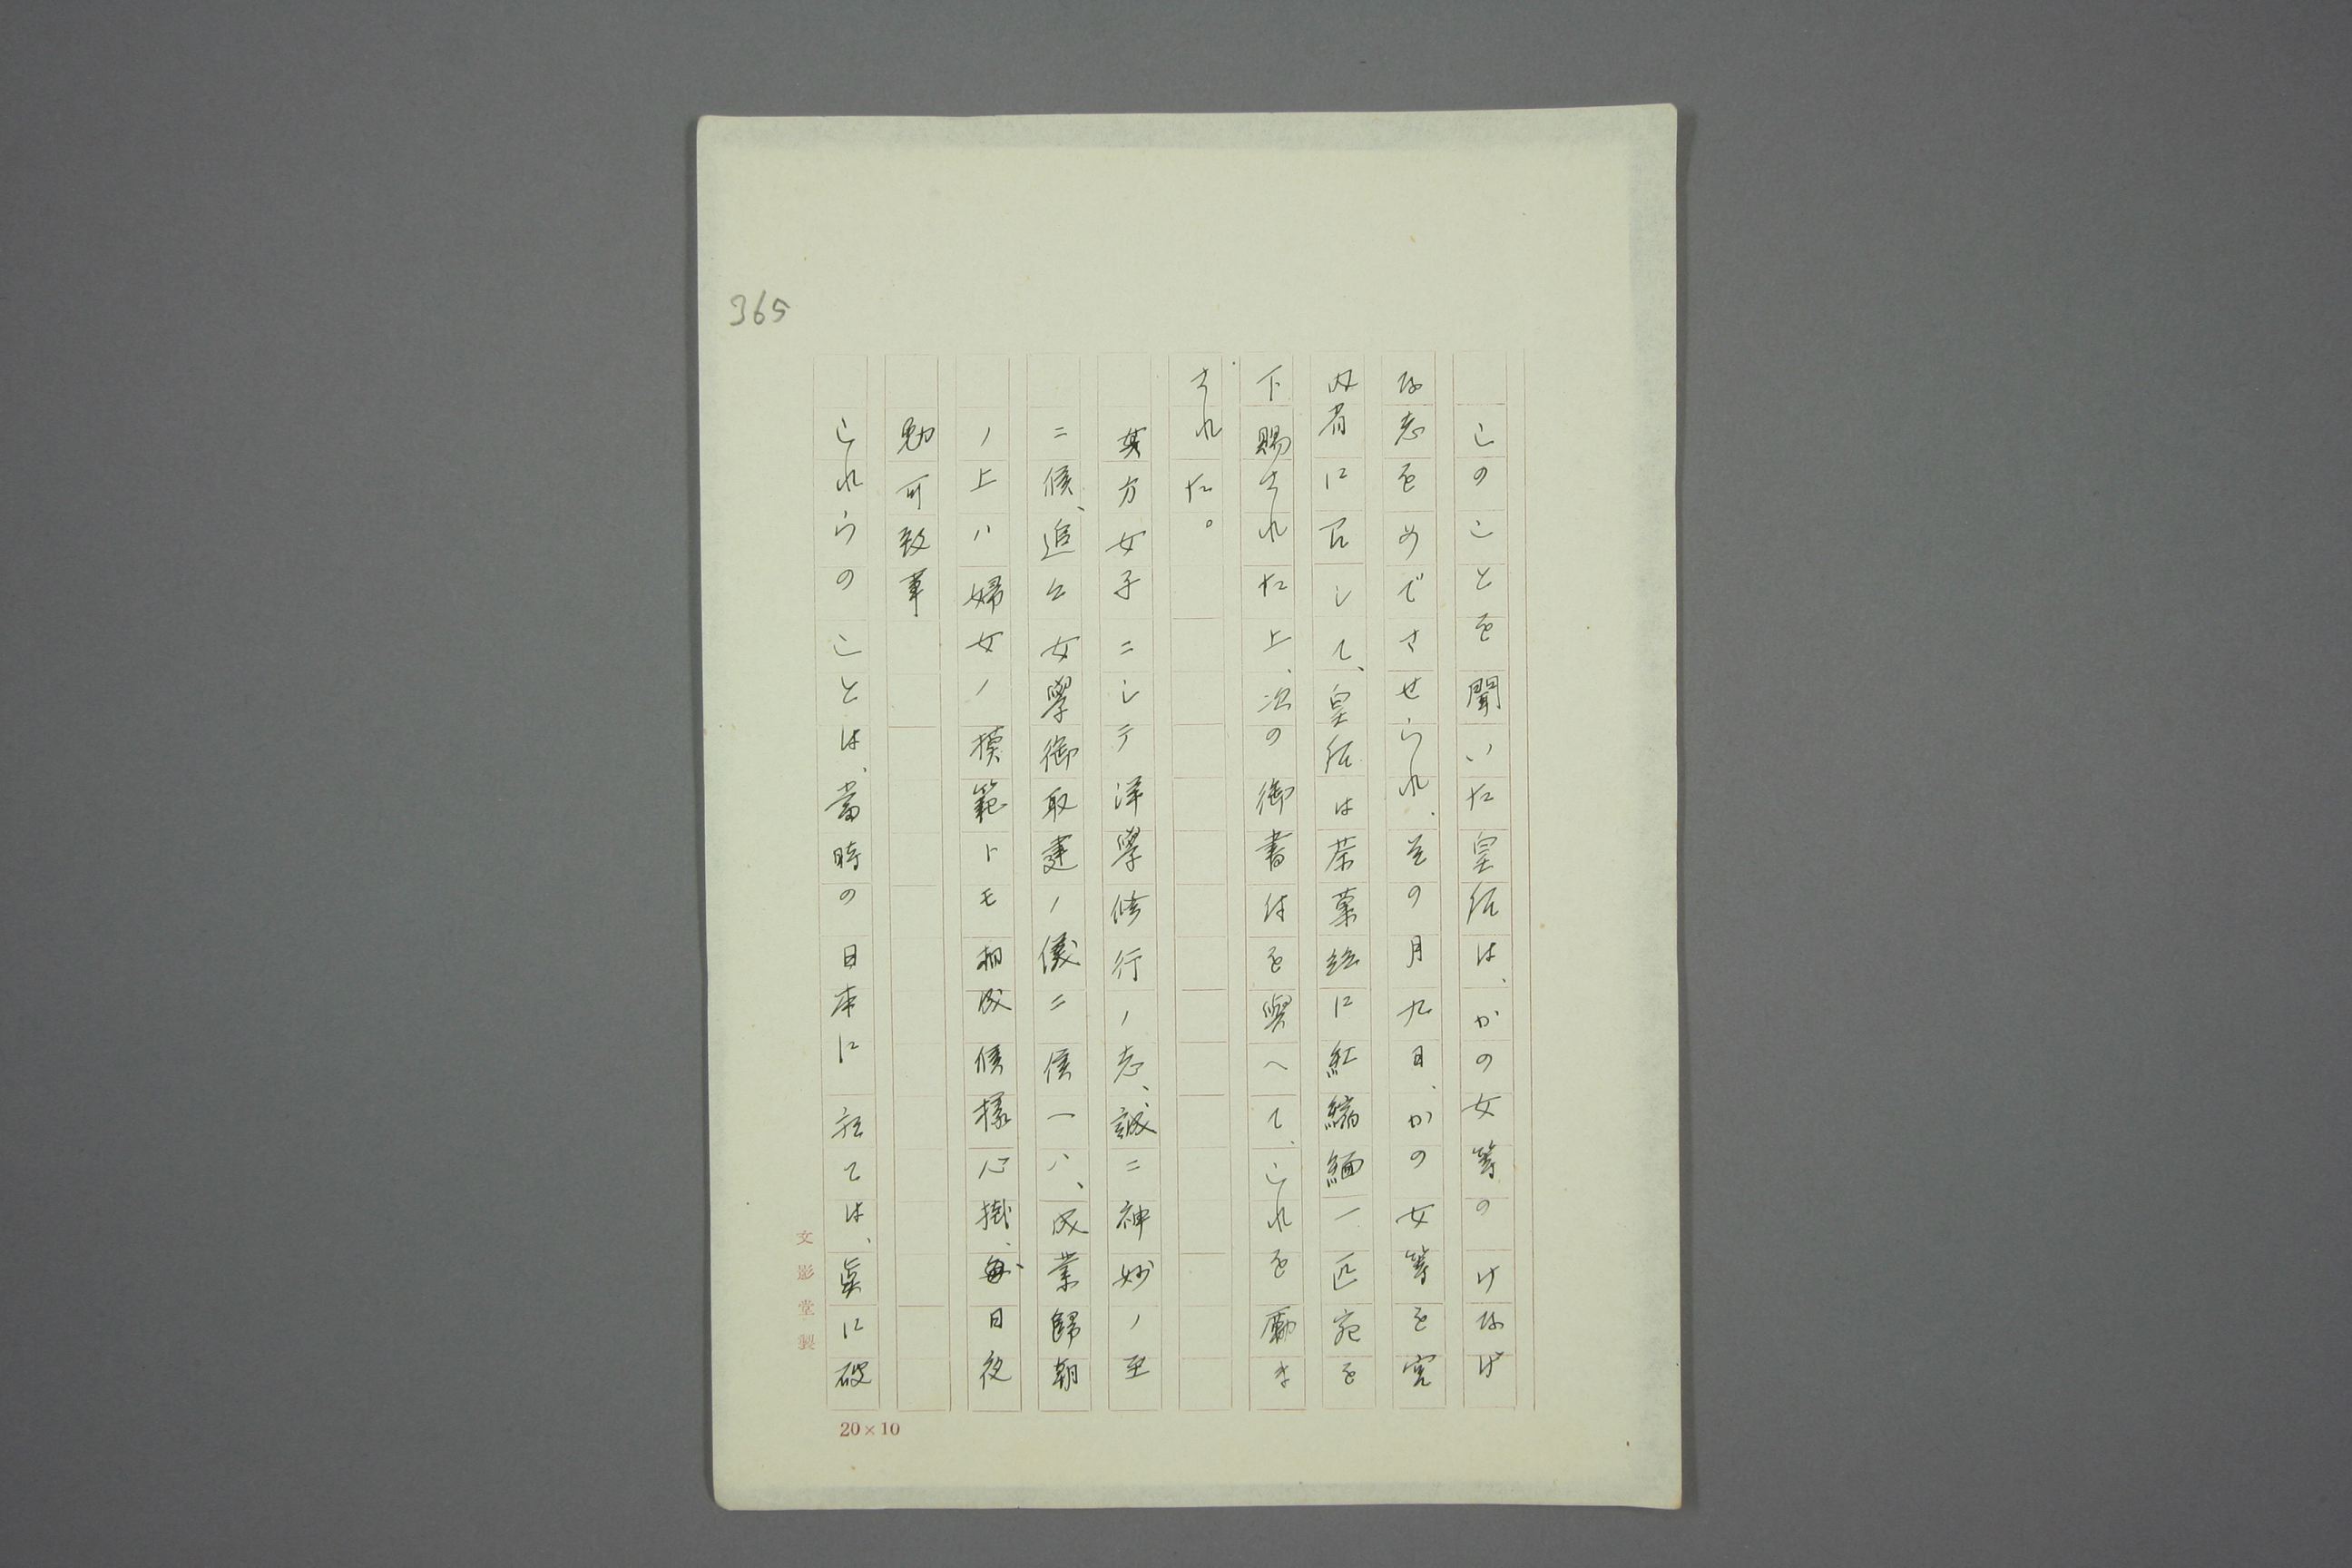 365
このことを聞いた皇后は、かの女等のけなげ
な志をめでさせられ、その月九日、かの女等を宮
内省に召して、皇后は茶菓並に紅縮緬一匹宛を
下賜された上、次の御書付を與へて、これを勵ま
された。
其方女子ニシテ洋學修行ノ志、誠ニ神妙ノ至
ニ候、追々女學御取建ノ儀ニ候ヘハ、成業歸朝
ノ上ハ婦女ノ模範トモ相成候樣心掛、毎日夜
勉可致事
これらのことは、當時の日本に於ては、眞に破
文影堂製
20×10